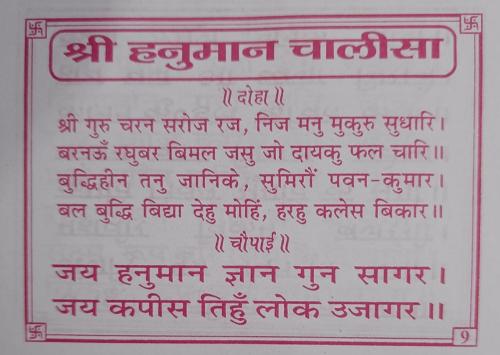 श्री हनुमान चालीसा
॥ दोहा ॥
श्री गुरु चरन सरोज रज, निज मनु मुकुरु सुधारि।
बरनऊँ रघुबर बिमल जसु जो दायकु फल चारि॥
बुद्धिहीन तनु जानिके, सुमिरौं पवन-कुमार।
बल बुद्धि बिद्या देहु मोहिं, हरहु कलेस बिकार॥
॥ चौपाई ॥
जय हनुमान ज्ञान गुन सागर।
जय कपीस तिहुँ लोक उजागर॥
9